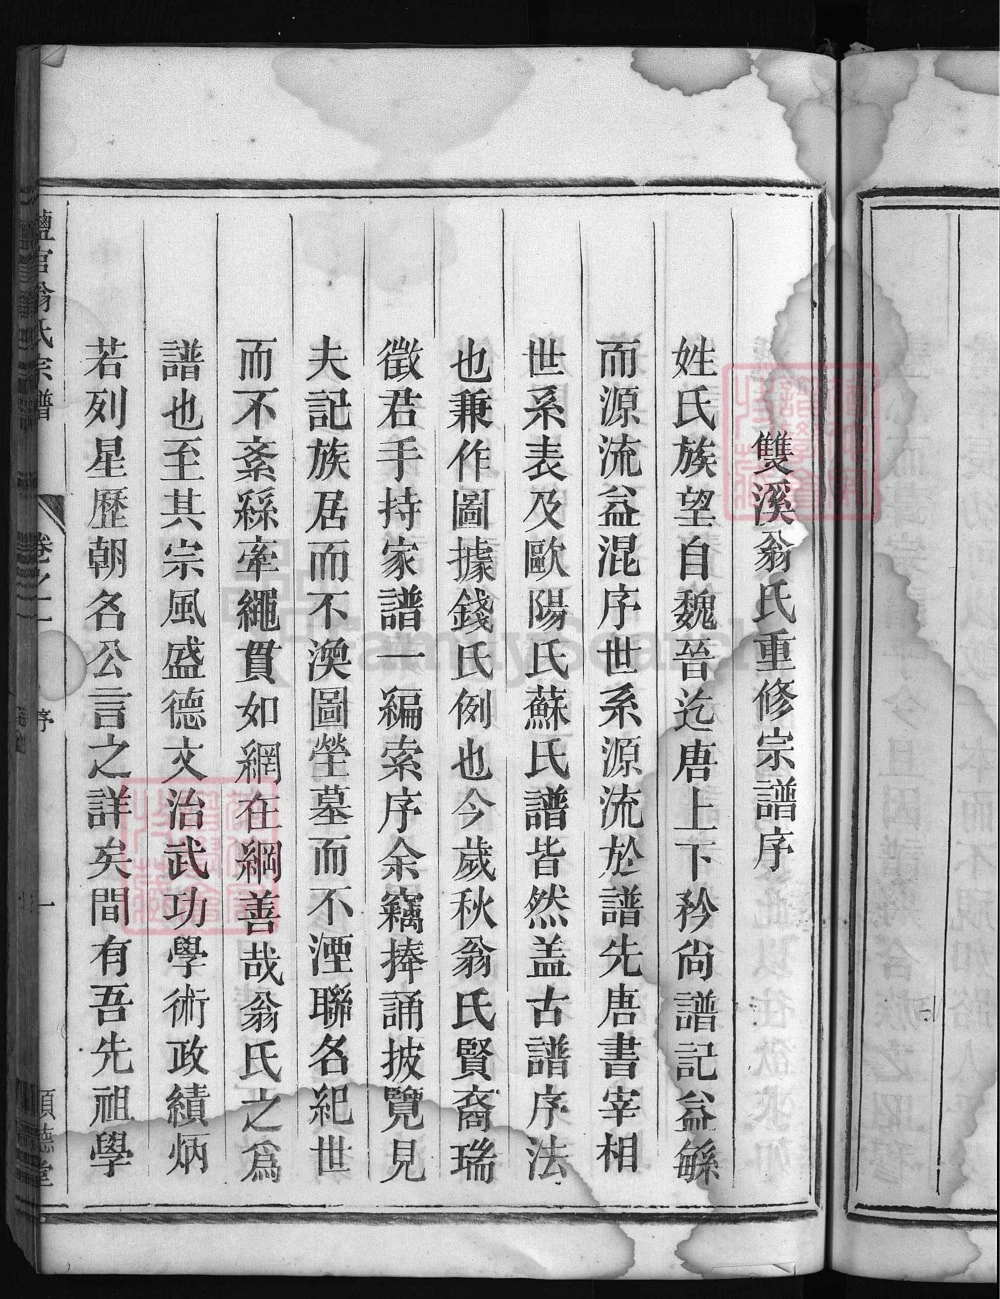 雙溪翁氏重修宗譜序
姓氏族望自魏晉迄唐上下矜尙譜記益繇
而源流益混序世系源流於譜先唐書宰相
世系表及歐陽氏蘇氏譜皆然盖古譜序法
也兼作圖據錢氏例也今歲秋翁氏賢裔瑞
徵君手持家譜一編索序余竊捧誦披覽見
夫記族居而不渙圖塋墓而不湮聯名紀世
而不紊繇牽繩貫如網在綱善哉翁氏之爲
譜也至其宗風盛德文治武功學術政績炳
若列星歷朝名公言之詳矣間有吾先祖學
鹽官翁氏宗譜 卷之一 序 一 順德堂
FamilySearch